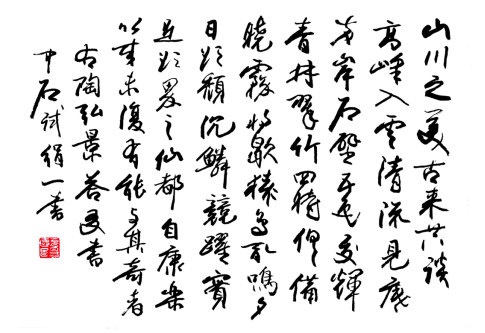 山川之美古来共談
高峰入雲清流見底
兩岸石壁五色交輝
青林翠竹四時俱備
曉霧将歇猿鳥乱鳴夕
日欲頹沉鱗競躍實
是欲界之仙都自康樂
以來未復有能与其奇者
右陶弘景答友書
中石試絹一書